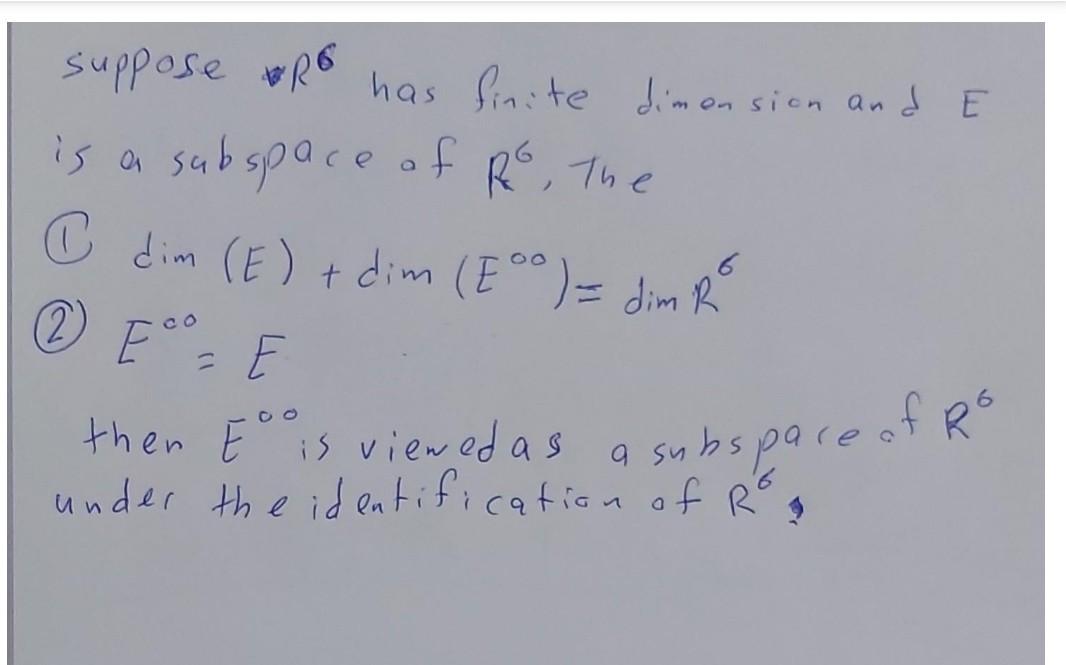 suppose R⁶ has finite dimension and E
is a subspace of R⁶, The
① dim (E) + dim (E⁰⁰) = dim R⁶
② E⁰⁰ = E
then E⁰⁰ is viewed as a subspace of R⁶
under the identification of R⁶,